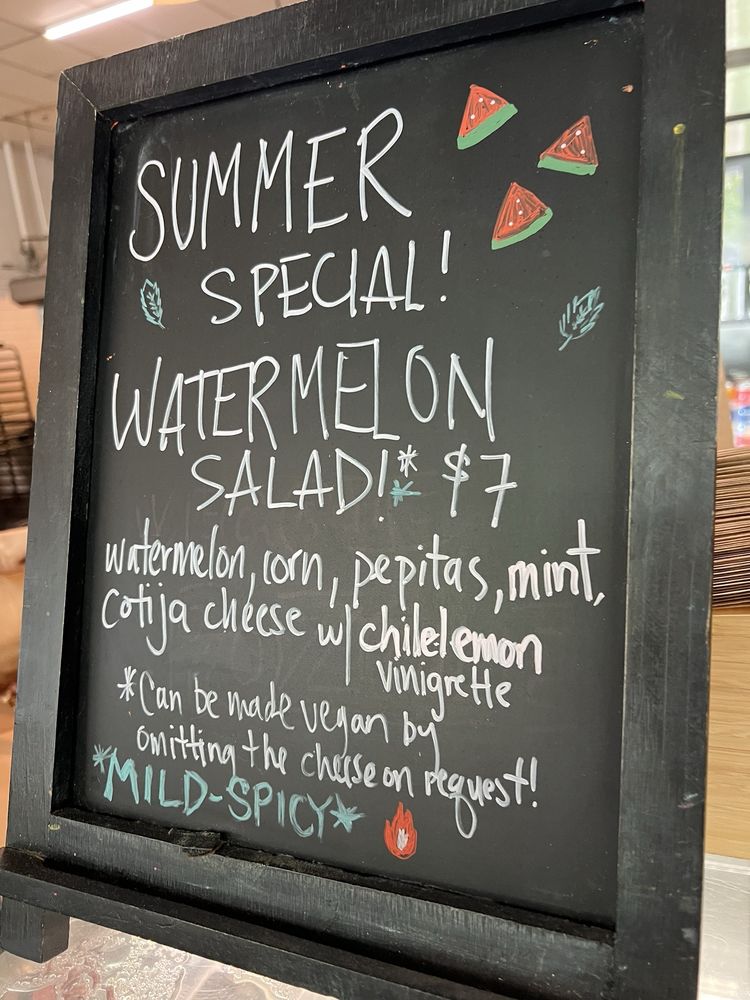 SUMMER
SPECIAL!
WATERMELON
SALAD!** $7
watermelon, corn, pepitas, mint,
cotija cheese w/ chilelemon
vinigrette
*Can be made vegan by
omitting the cheese on request!
*MILD-SPICY*